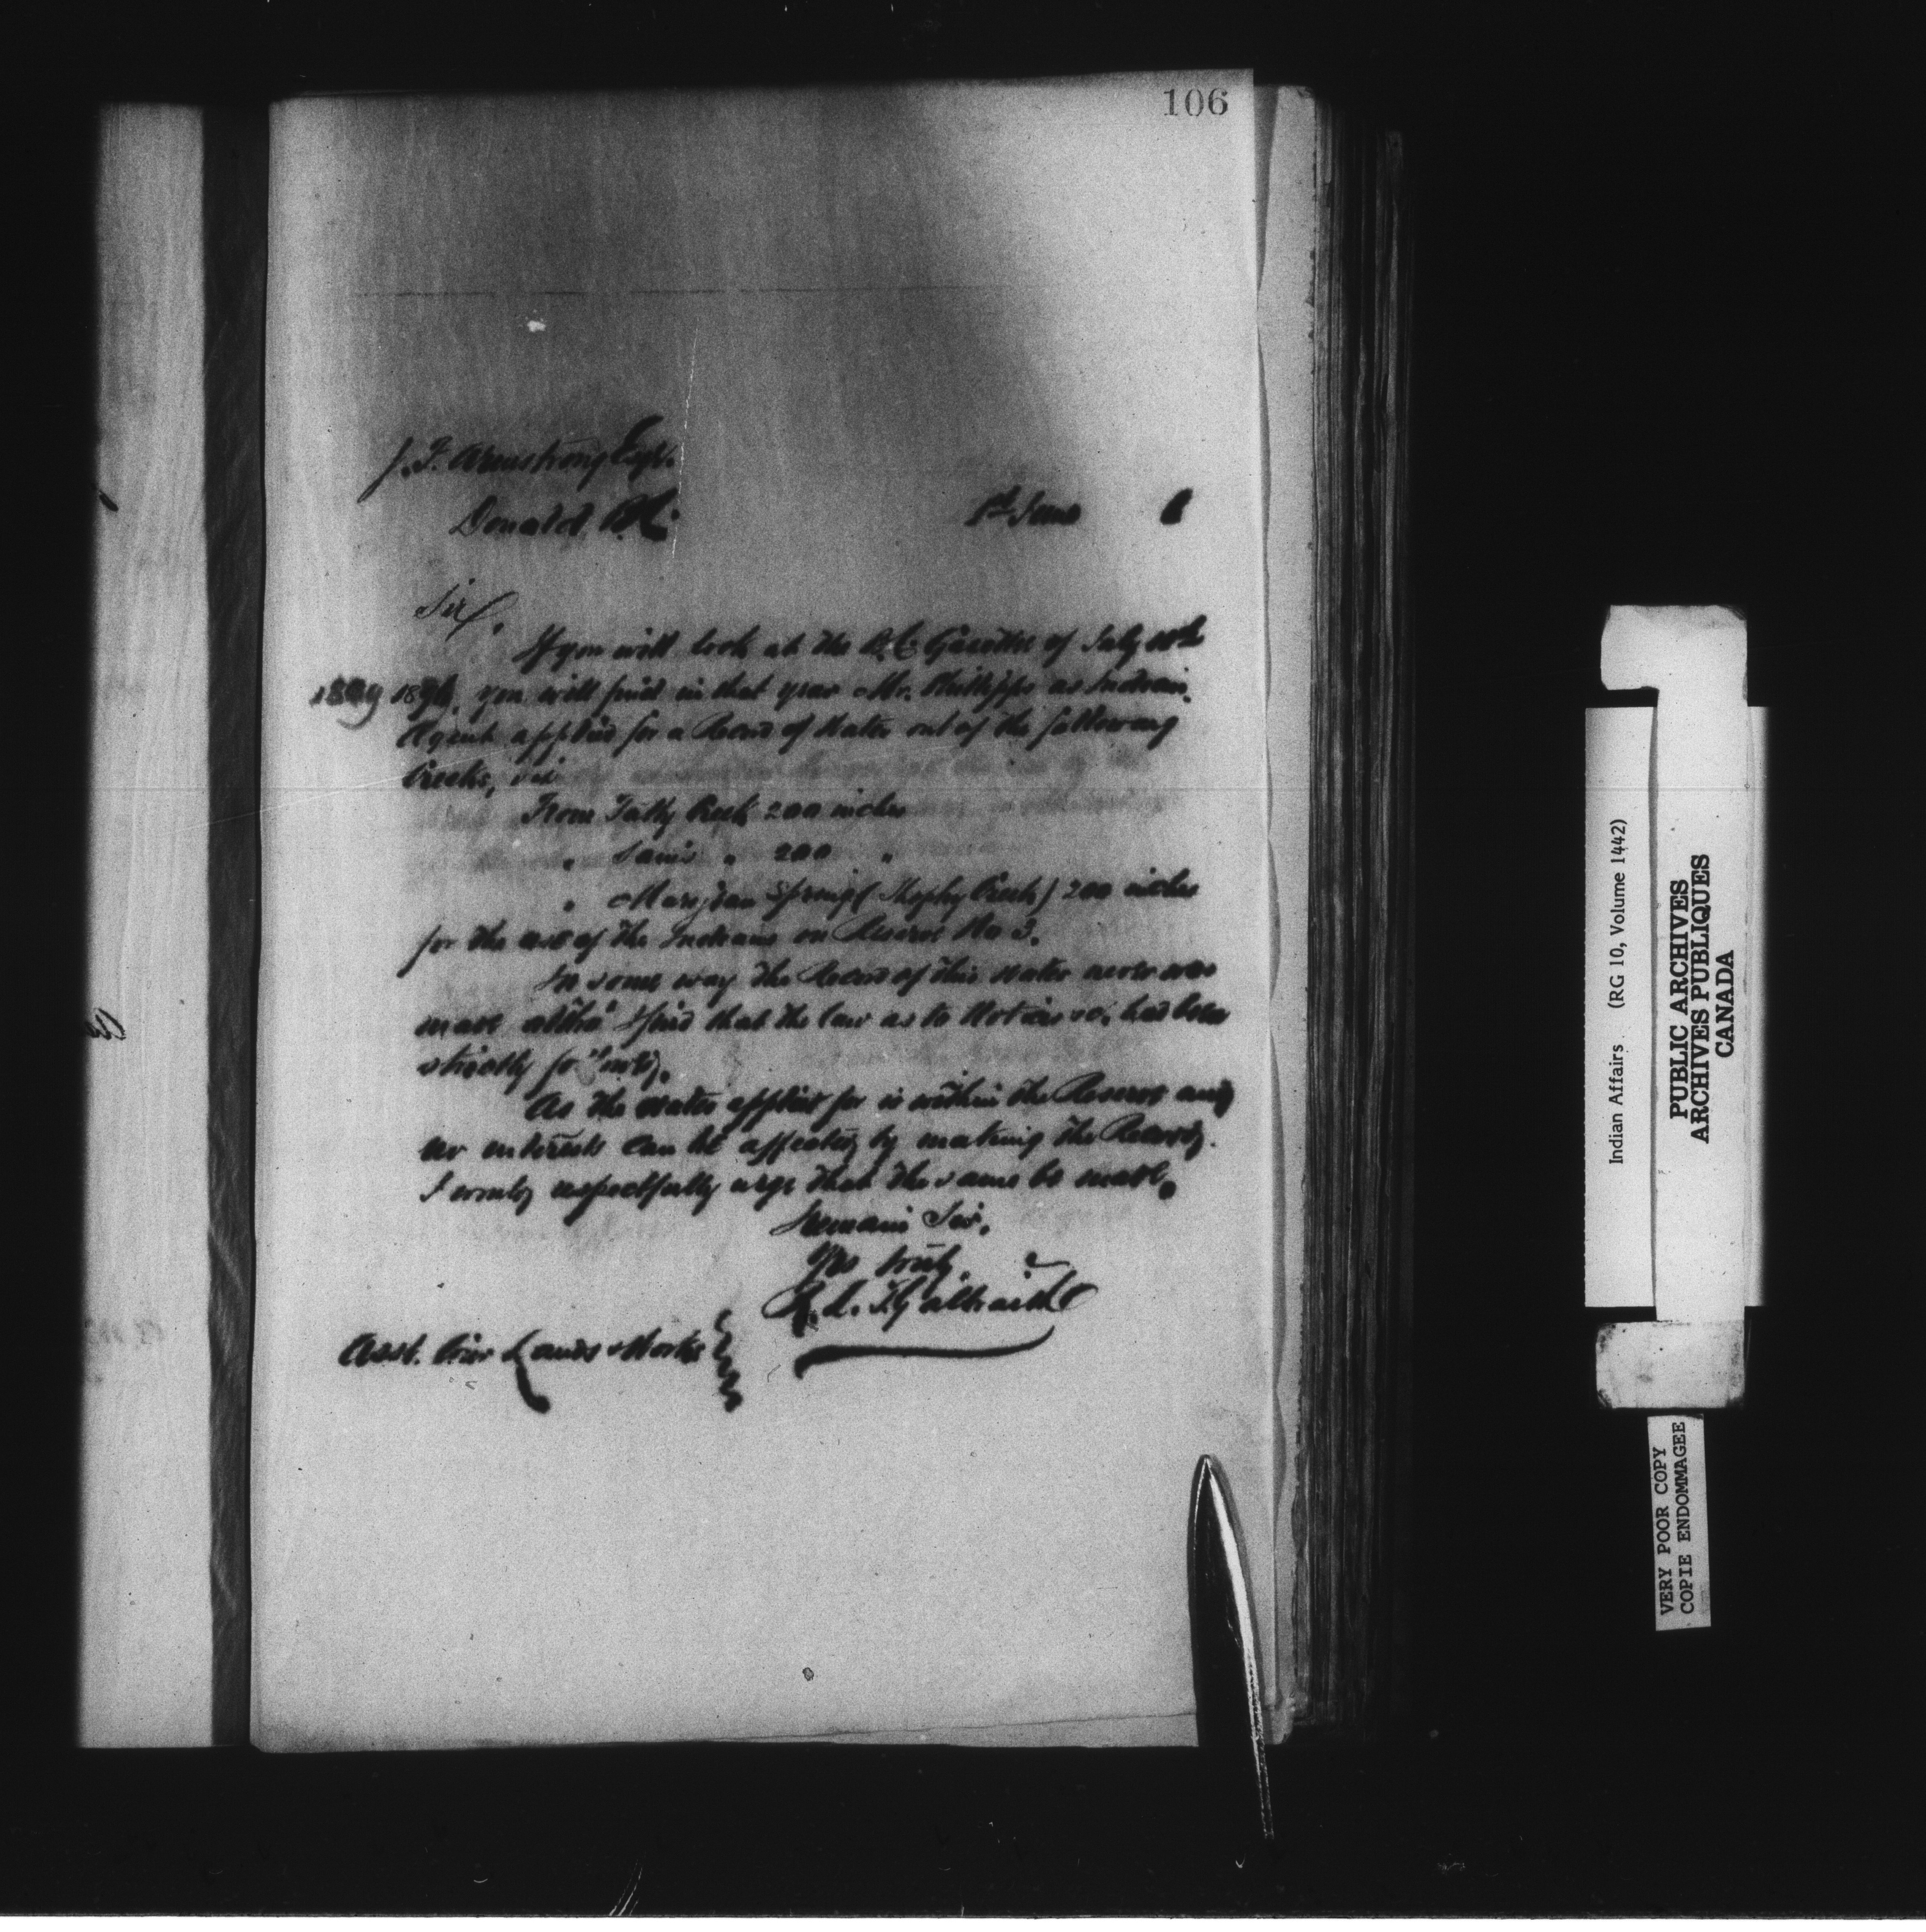 106
J. F. Armstrong Esqr.
Donald, B.C. 1st June 6
Sir,
If you will look at the B.C. Gazette of July
you will find in that year Mr. Phillipps as Indian
Agent applied for a Record of Water out of the following
Creeks, viz
From Creek 200 inches
" " 200 "
" Spring ( Creek) 200 inches
for the use of the Indians on Reserve No 3.
In some way the Record of this Water never was
made altho' I find that the law as to Notices &c. had been
strictly
As the Water applied for is within the Reserve and
no interests can be affected by making the Record,
I would respectfully urge that the same be made,
I remain Sir,
Yrs truly
R. L. T. Galbraith
Asst. Com Lands & Works
Indian Affairs (RG 10, Volume 1442)
PUBLIC ARCHIVES
ARCHIVES PUBLIQUES
CANADA
VERY POOR COPY
COPIE ENDOMMAGEE